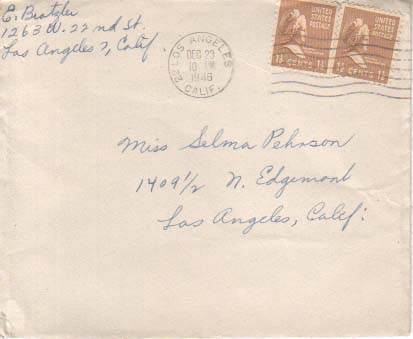 E. Bratzler
1263 W. 22nd St.
Los Angeles 7, Calif.
LOS ANGELES
DEC 23
10 PM
1946
CALIF.
UNITED STATES POSTAGE
1½ CENTS 1½
UNITED STATES POSTAGE
1½ CENTS 1½
Miss Selma Pehrson
1409½ N. Edgemont
Los Angeles, Calif.